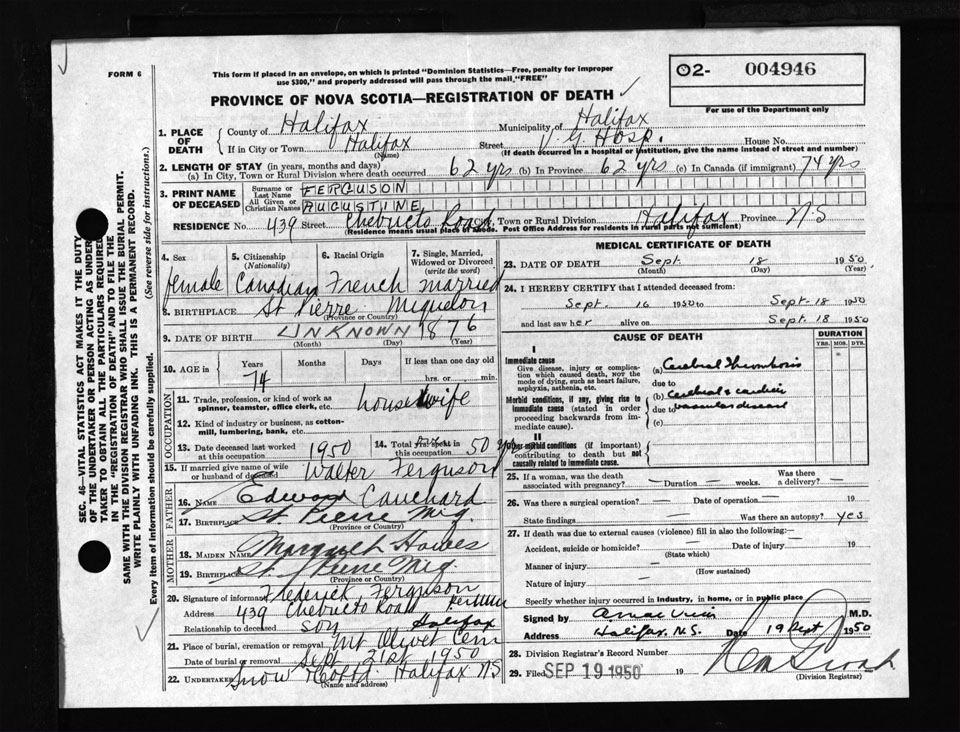 FORM 6
This form if placed in an envelope, on which is printed "Dominion Statistics—Free, penalty for improper
use $300," and properly addressed will pass through the mail, "FREE"
02- 004946
For use of the Department only
PROVINCE OF NOVA SCOTIA—REGISTRATION OF DEATH
1. PLACE OF DEATH
County of Halifax Municipality of Halifax
If in City or Town Halifax Street V. G. Hosp. House No.
(Name) (If death occurred in a hospital or institution, give the name instead of street and number)
2. LENGTH OF STAY (in years, months and days)
(a) In City, Town or Rural Division where death occurred 62 yrs (b) In Province 62 yrs (c) In Canada (if immigrant) 74 yrs
3. PRINT NAME OF DECEASED
Surname or Last Name FERGUSON
All Given or Christian Names AUGUSTINE
RESIDENCE No. 439 Street Chebucto Road City, Town or Rural Division Halifax Province N.S
(Residence means usual place of abode. Post Office Address for residents in rural parts not sufficient)
4. Sex female
5. Citizenship (Nationality) Canadian
6. Racial Origin French
7. Single, Married, Widowed or Divorced (write the word) married
8. BIRTHPLACE St Pierre Miquelon
(Province or Country)
9. DATE OF BIRTH UNKNOWN 1876
(Month) (Day) (Year)
10. AGE in Years 74 Months Days If less than one day old
hrs. or min.
OCCUPATION
11. Trade, profession, or kind of work as spinner, teamster, office clerk, etc. housewife
12. Kind of industry or business, as cotton-mill, lumbering, bank, etc.
13. Date deceased last worked at this occupation 1950
14. Total years spent in this occupation 50 yrs
15. If married give name of wife or husband of deceased Walter Ferguson
FATHER
16. Name Edward Cauchard
17. Birthplace St. Pierre Miq.
(Province or Country)
MOTHER
18. MAIDEN NAME Howes
19. Birthplace St. Pierre Miq
(Province or Country)
20. Signature of informant Frederick Ferguson
Address 439 Chebucto Road Halifax
Relationship to deceased son
21. Place of burial, cremation or removal Mt Olivet Cem
Date of burial or removal Sept 21st 1950
22. Undertaker Snow Halifax NS
(Name and address)
MEDICAL CERTIFICATE OF DEATH
23. DATE OF DEATH Sept. 18 1950
(Month) (Day) (Year)
24. I HEREBY CERTIFY that I attended deceased from
Sept. 16 1950 to Sept. 18 1950
and last saw her alive on Sept. 18 1950
CAUSE OF DEATH
DURATION
YRS. MOS. DYS.
I
Immediate cause
Give disease, injury or complication which caused death, NOT the mode of dying, such as heart failure, asphyxia, asthenia, etc.
(a) Cerebral thrombosis
due to
Morbid conditions, if any, giving rise to immediate cause (stated in order proceeding backwards from immediate cause).
(b) Cerebral & cardiac
due to vascular disease
(c)
II
Other morbid conditions (if important) contributing to death but not causally related to immediate cause.
25. If a woman, was the death associated with pregnancy? — Duration — weeks. Was there a delivery? —
26. Was there a surgical operation? — Date of operation — 19
State findings — Was there an autopsy? yes
27. If death was due to external causes (violence) fill in also the following:—
Accident, suicide or homicide? — Date of injury — 19
(State which)
Manner of injury —
(How sustained)
Nature of injury —
Specify whether injury occurred in industry, in home, or in public place
Signed by M.D.
Address Halifax, N.S. Date 19 Sept 1950
28. Division Registrar's Record Number
29. Filed SEP 19 1950 19
(Division Registrar)
SEC. 46—VITAL STATISTICS ACT MAKES IT THE DUTY
OF THE UNDERTAKER OR PERSON ACTING AS UNDERTAKER TO OBTAIN ALL THE PARTICULARS REQUIRED
IN THE "REGISTRATION OF DEATH" AND TO FILE THE
SAME WITH THE DIVISION REGISTRAR WHO SHALL ISSUE THE BURIAL PERMIT.
WRITE PLAINLY WITH UNFADING INK. THIS IS A PERMANENT RECORD.
Every item of information should be carefully supplied. (See reverse side for instructions.)